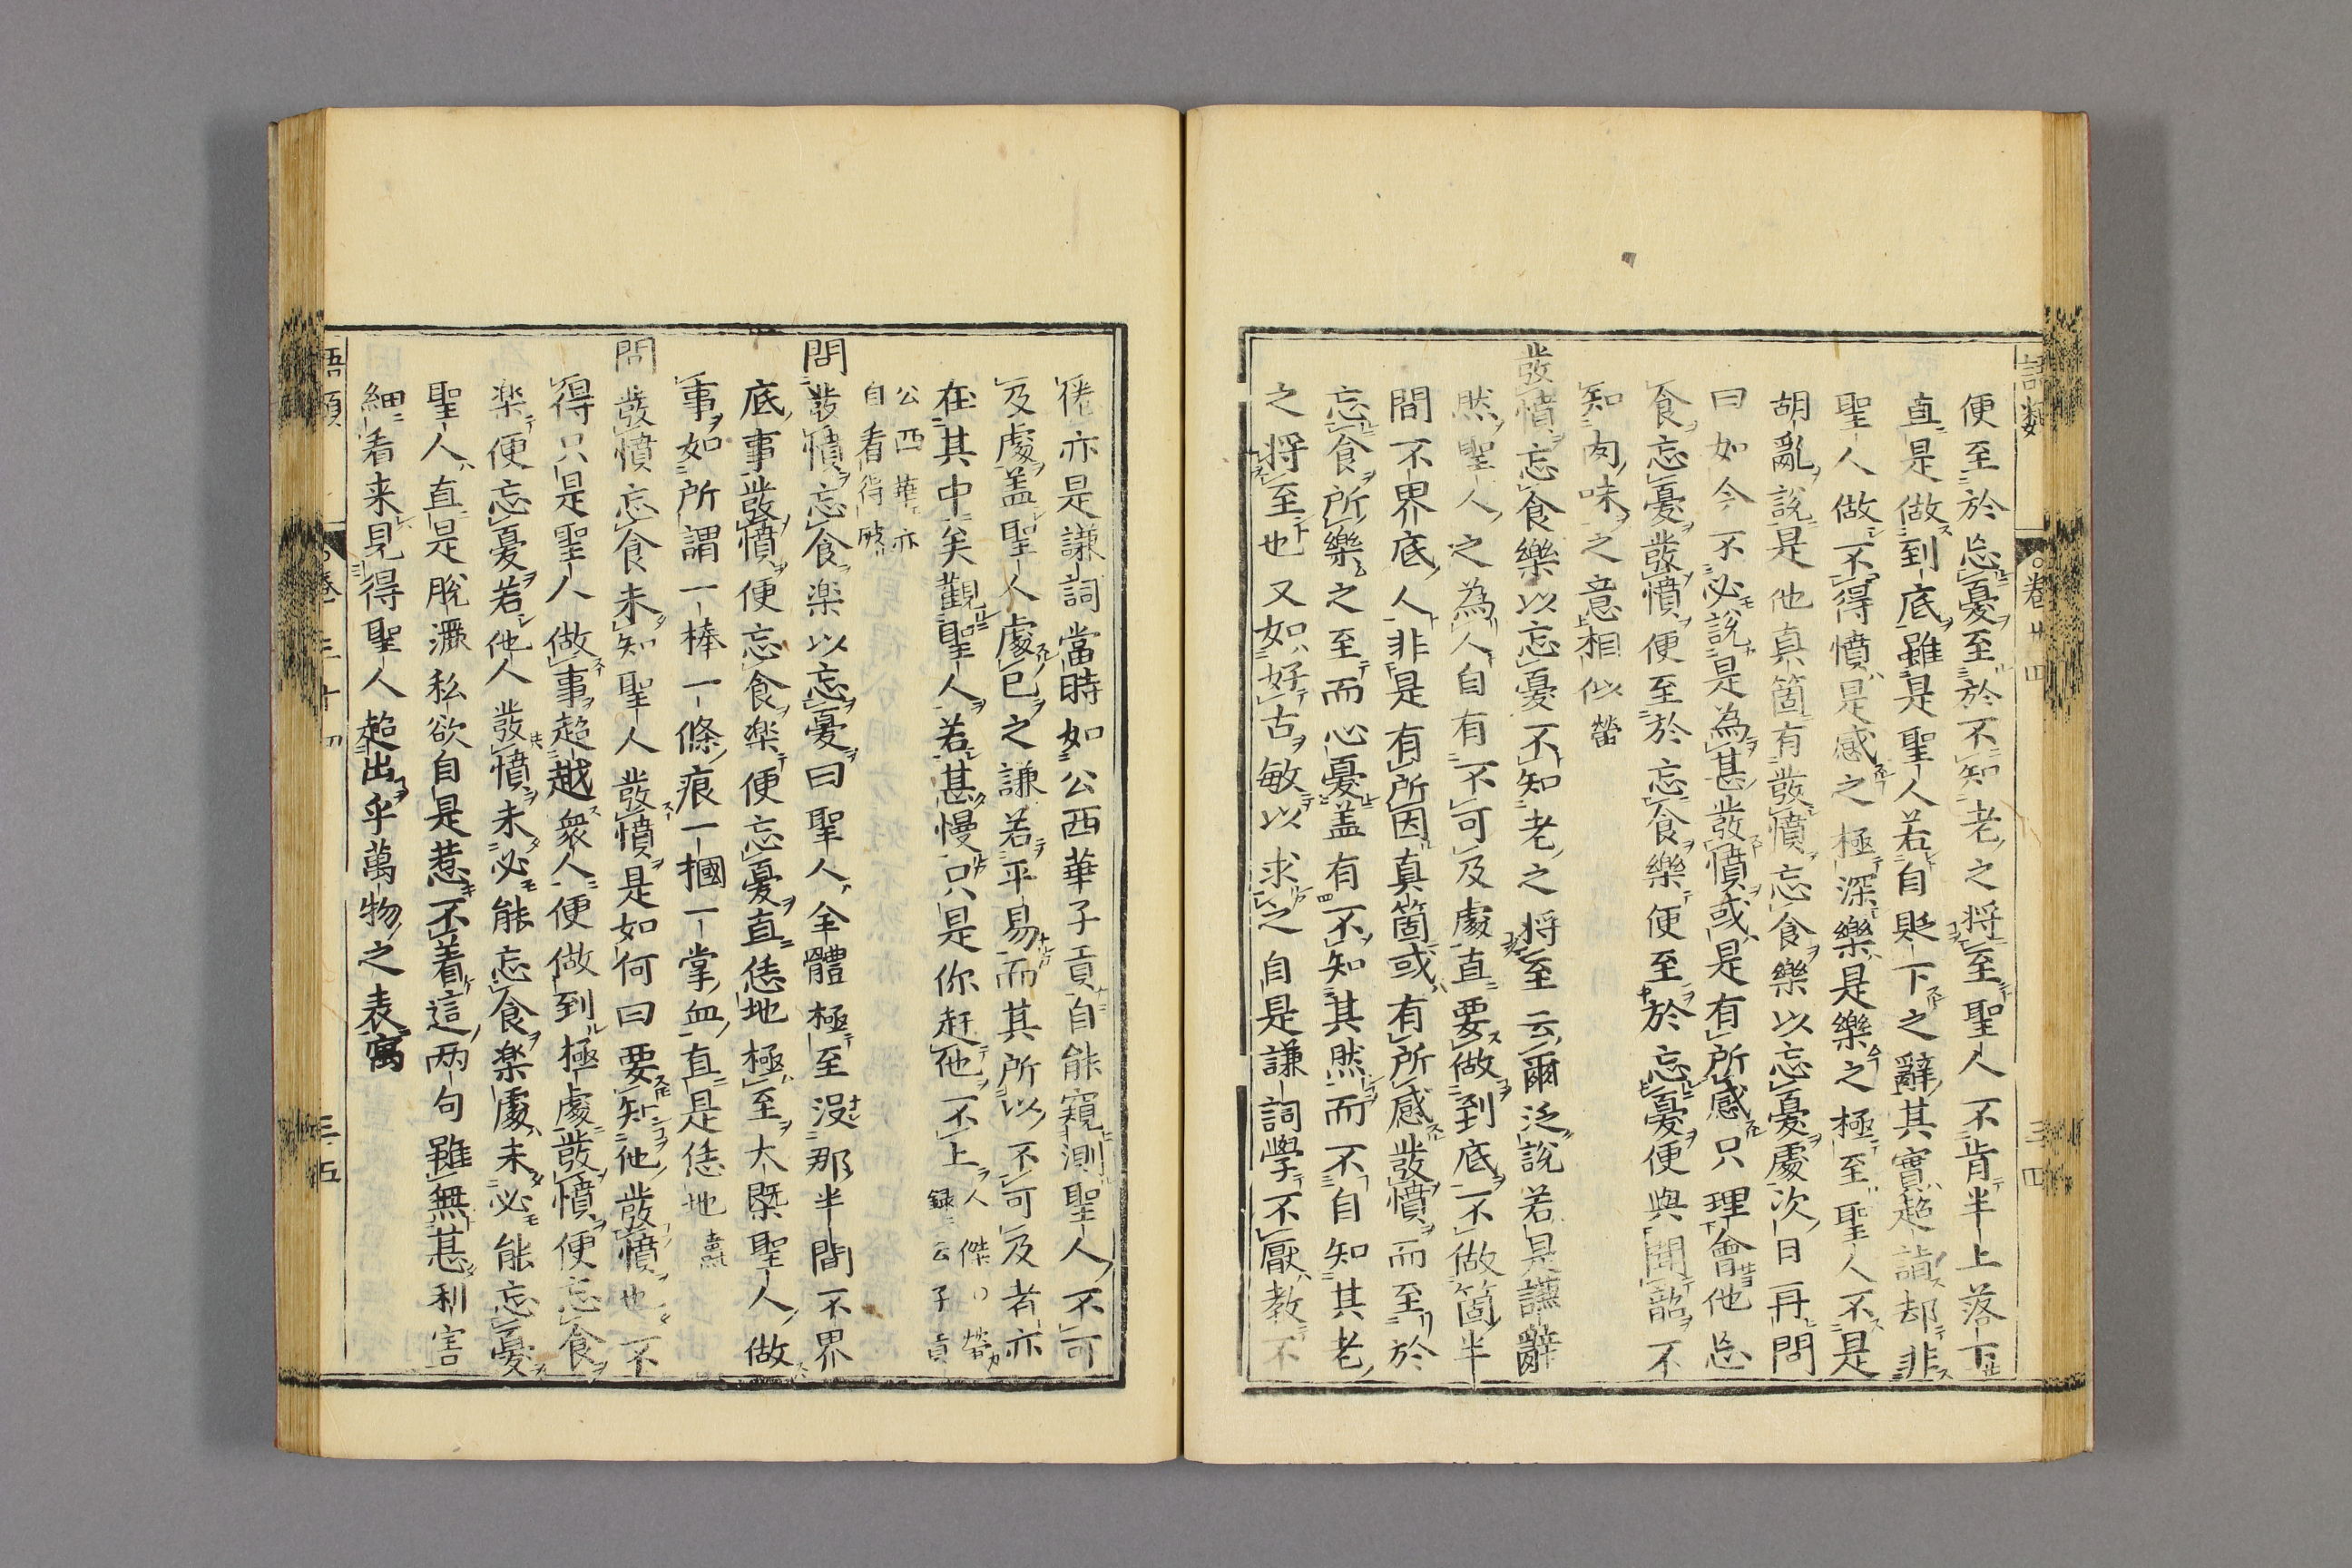 語類
卷廿四
三四
便至於忘憂至於不知老之將至聖人不肯半上落下
直是做到底雖是聖人若自貶下之辭其實超詣却非
聖人做不得憤是感之極深樂是樂之極至聖人不是
胡亂說是他真箇有發憤忘食樂以忘憂處次日再問
曰如今不必說是為甚發憤或是有所感只理會他忘
食忘憂發憤便至於忘食樂便至於忘憂便與聞韶不
知肉味之意相似㽦
發憤忘食樂以忘憂不知老之將至云爾泛說若是謙辭
然聖人之為人自有不可及處直要做到底不做箇半
間不界底人非是有所因真箇或有所感發憤而至於
忘食所樂之至而忘憂盖有不知其然而不自知其老
之將至也又如好古敏以求之自是謙詞學不厭教不
倦亦是謙詞當時如公西華子貢自能窺測聖人不可
及處盖聖人處己之謙若平易而其所以不可及者亦
在其中矣觀聖人若甚慢只是你赶他不上人傑〇㽦
錄云子貢
公西華亦
自看得破
問發憤忘食楽以忘憂曰聖人全體極至没那半間不界
底事發憤便忘食楽便忘憂直恁地極至大槩聖人做
事如所謂一棒一條痕一摑一掌血直是恁地燾
問發憤忘食未知聖人發憤是如何曰要知他發憤也不
得只是聖人做事超越衆人便做到極處發憤便忘食
楽便忘憂若他人發憤未必能忘食楽處未必能忘憂
聖人直是脫灑私欲自是惹不着這两句雖無甚利害
細看来見得聖人超出乎萬物之表㝢
語類
卷三十四
三五